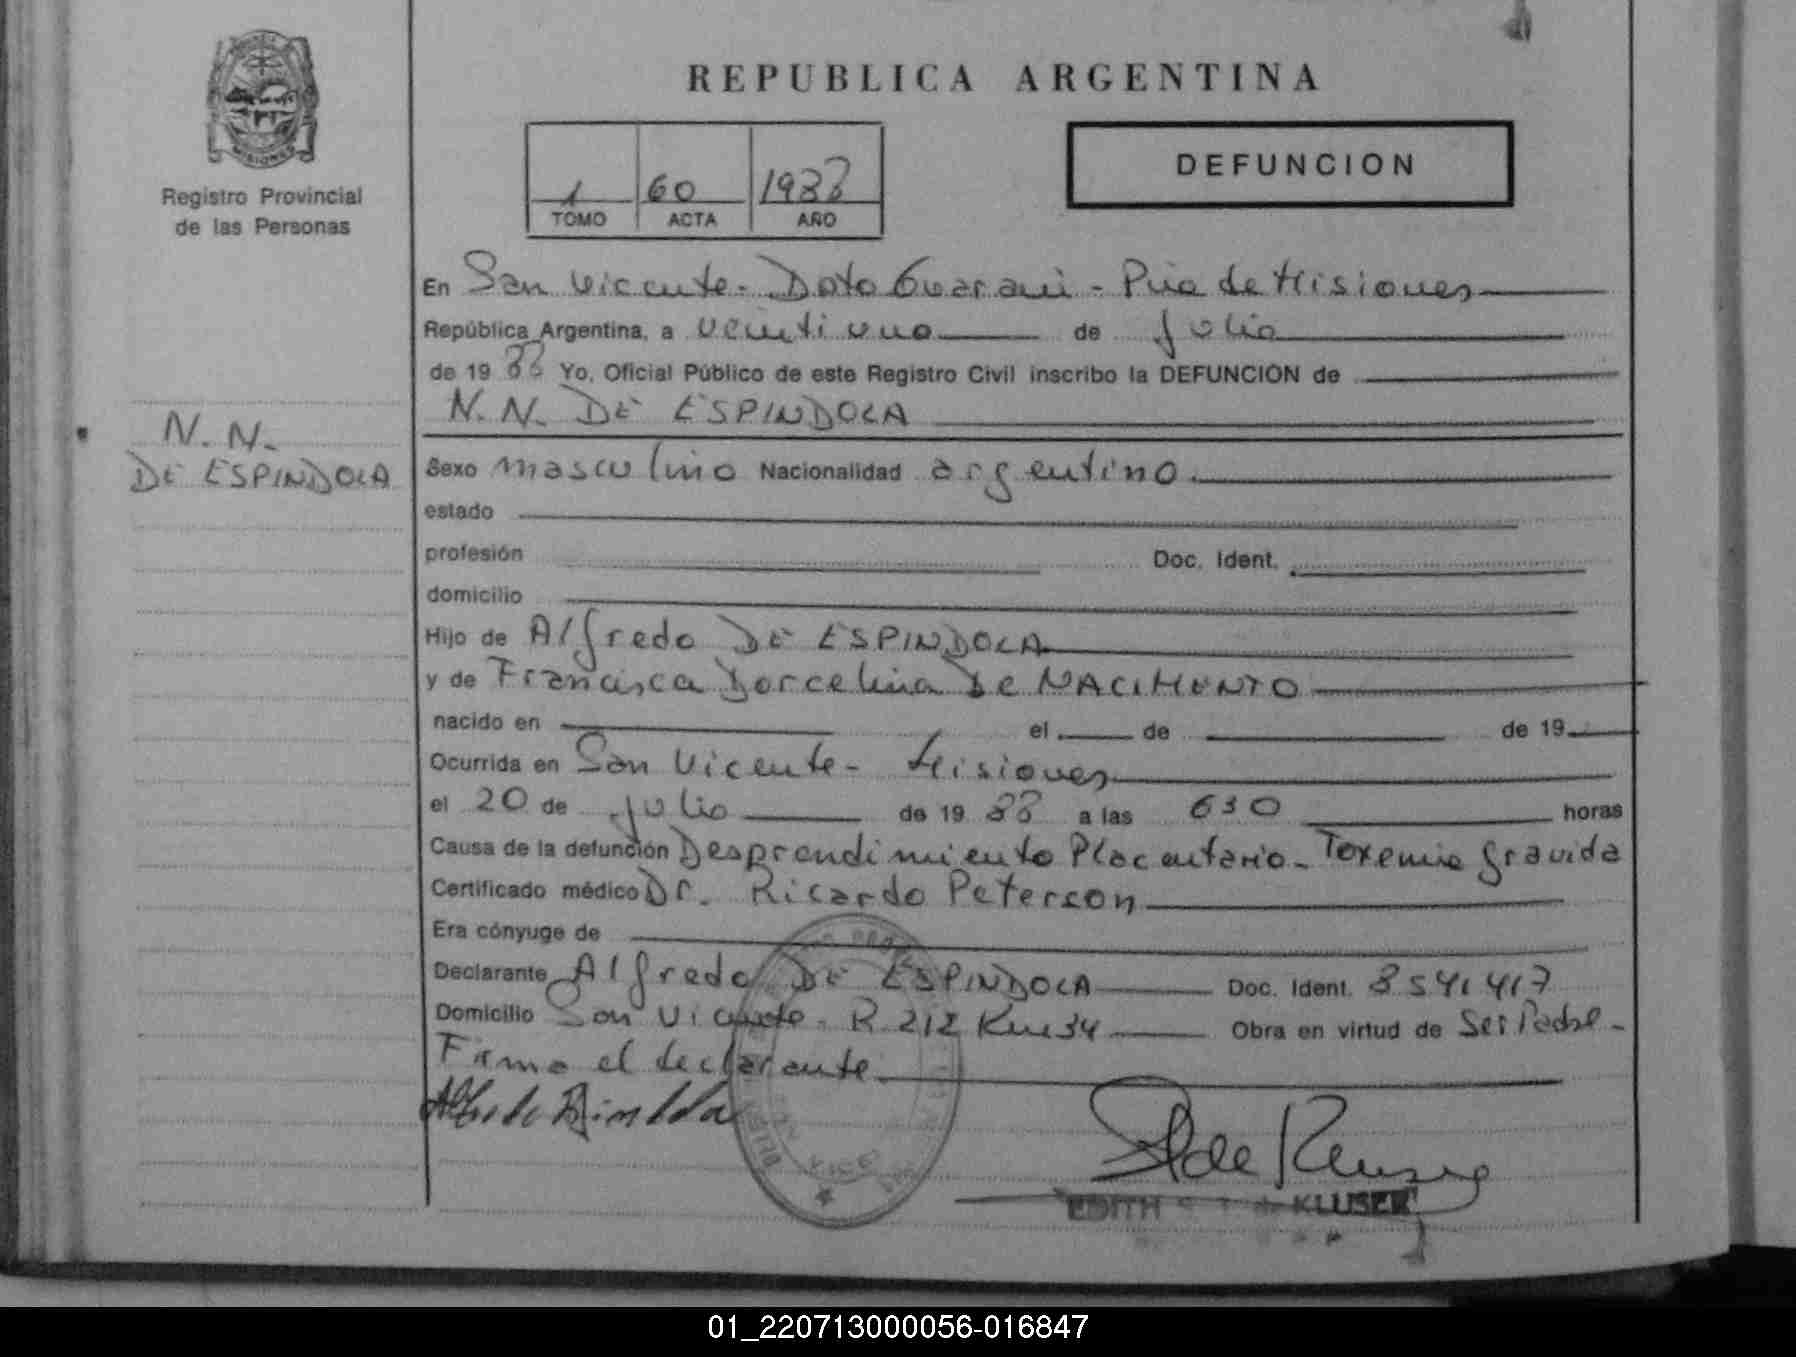 REPUBLICA ARGENTINA
MISIONES
Registro Provincial
de las Personas
1 60 1988
TOMO ACTA AÑO
DEFUNCION
En San Vicente - Dpto Guarani - Pcia de Misiones
República Argentina, a veintiuno de Julio
de 19 88 Yo, Oficial Público de este Registro Civil inscribo la DEFUNCION de
N. N. DE ESPINDOLA
N. N.
DE ESPINDOLA
Sexo masculino Nacionalidad argentino
estado
profesión Doc. Ident.
domicilio
Hijo de Alfredo DE ESPINDOLA
y de Francisca Dorcelina De NACIMENTO
nacido en el de de 19
Ocurrida en San Vicente - Misiones
el 20 de Julio de 19 88 a las 630 horas
Causa de la defunción Desprendimiento Placentario - Toxemia Gravida
Certificado médico Dr. Ricardo Peterson
Era cónyuge de
Declarante Alfredo DE ESPINDOLA Doc. Ident. 8541417
Domicilio San Vicente - R 212 Km 34 Obra en virtud de Ser Padre -
Firma el declarante
EDITH KLUSER
01_220713000056-016847